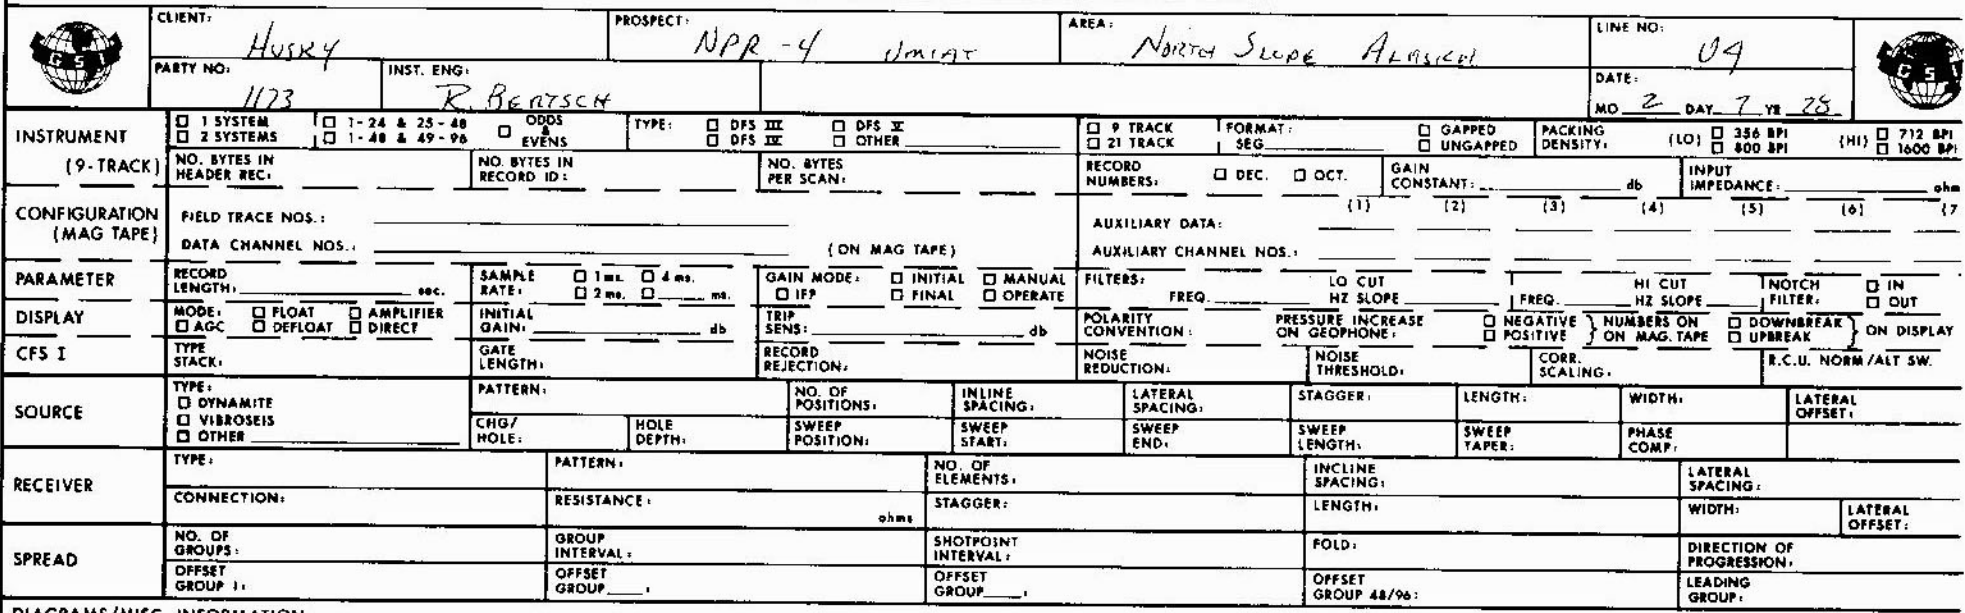 CLIENT: HUSKY PROSPECT: NPR-4 UMIAT AREA: NORTH SLOPE ALASKA LINE NO: U9
GSI GSI
PARTY NO: 1173 INST. ENG: R. BERTSCH DATE: MO 2 DAY 7 YR 78
INSTRUMENT (9-TRACK) □ 1 SYSTEM □ 1-24 & 25-48 □ ODDS & EVENS TYPE: □ DFS III □ DFS V □ 9 TRACK FORMAT: □ GAPPED PACKING DENSITY: (LO) □ 356 BPI (HI) □ 712 BPI
□ 2 SYSTEMS □ 1-48 & 49-96 □ DFS IV □ OTHER □ 21 TRACK SEG □ UNGAPPED □ 800 BPI □ 1600 BPI
NO. BYTES IN HEADER REC: NO. BYTES IN RECORD ID: NO. BYTES PER SCAN: RECORD NUMBERS: □ DEC. □ OCT. GAIN CONSTANT: db INPUT IMPEDANCE: ohm
CONFIGURATION (MAG TAPE) FIELD TRACE NOS.: AUXILIARY DATA: (1) (2) (3) (4) (5) (6) (7
DATA CHANNEL NOS.: (ON MAG TAPE) AUXILIARY CHANNEL NOS.:
PARAMETER RECORD LENGTH: sec. SAMPLE RATE: □ 1 ms. □ 4 ms. □ 2 ms. □ ms. GAIN MODE: □ INITIAL □ MANUAL □ IFP □ FINAL □ OPERATE FILTERS: FREQ. LO CUT HZ SLOPE FREQ. HI CUT HZ SLOPE NOTCH FILTER: □ IN □ OUT
DISPLAY MODE: □ FLOAT □ AMPLIFIER □ AGC □ DEFLOAT □ DIRECT INITIAL GAIN: db TRIP SENS: db POLARITY CONVENTION: PRESSURE INCREASE ON GEOPHONE: □ NEGATIVE □ POSITIVE } NUMBERS ON MAG. TAPE □ DOWNBREAK □ UPBREAK } ON DISPLAY
CFS I TYPE STACK: GATE LENGTH: RECORD REJECTION: NOISE REDUCTION: NOISE THRESHOLD: CORR. SCALING: R.C.U. NORM/ALT SW.
SOURCE TYPE: □ DYNAMITE □ VIBROSEIS □ OTHER PATTERN: NO. OF POSITIONS: INLINE SPACING: LATERAL SPACING: STAGGER: LENGTH: WIDTH: LATERAL OFFSET:
CHG/HOLE: HOLE DEPTH: SWEEP POSITION: SWEEP START: SWEEP END: SWEEP LENGTH: SWEEP TAPER: PHASE COMP:
RECEIVER TYPE: PATTERN: NO. OF ELEMENTS: INCLINE SPACING: LATERAL SPACING:
CONNECTION: RESISTANCE: ohms STAGGER: LENGTH: WIDTH: LATERAL OFFSET:
SPREAD NO. OF GROUPS: GROUP INTERVAL: SHOTPOINT INTERVAL: FOLD: DIRECTION OF PROGRESSION:
OFFSET GROUP 1: OFFSET GROUP : OFFSET GROUP : OFFSET GROUP 48/96: LEADING GROUP:
DIAGRAMS/MISC. INFORMATION